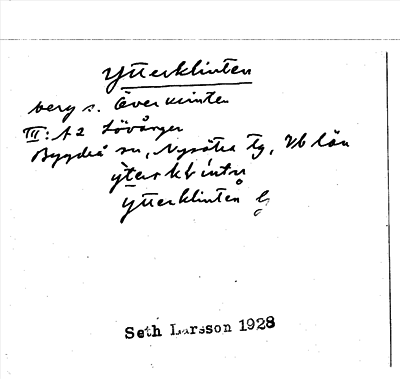 Ytterklinten
berg s. Överklinten
III: A2 Lövånger
Bygdeå sn, Nysätra tg, Vb län
ytterklinten
Seth Larsson 1928